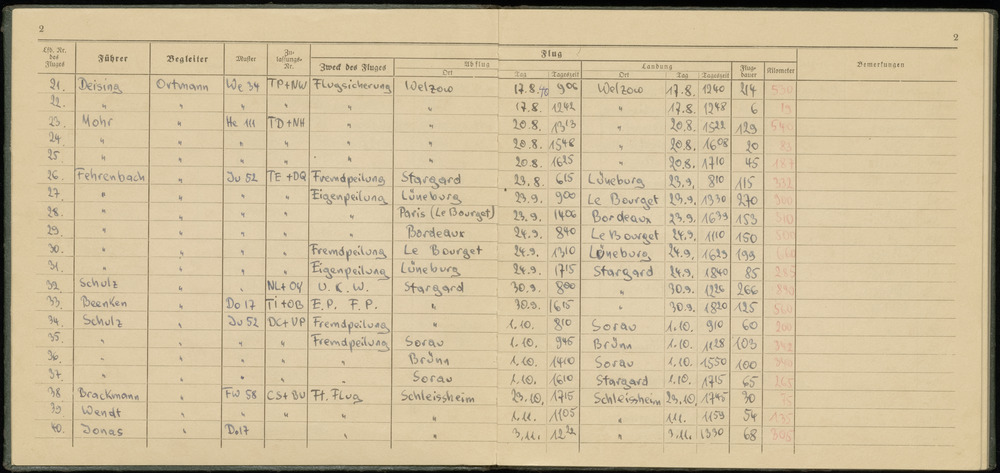 2 2
Lfd. Nr. des Fluges Führer Begleiter Muster Zulassungs-Nr. Zweck des Fluges Abflug Flug Landung Flugdauer Kilometer Bemerkungen
Ort Tag Tageszeit Ort Tag Tageszeit
21. Deising Ortmann We 34 TP+NW Flugsicherung Welzow 17.8.40 906 Welzow 17.8. 1240 214 530
22. " " " " " " 17.8. 1242 " 17.8. 1248 6 19
23. Mohr " He 111 TD+NH " " 20.8. 1313 " 20.8. 1522 129
24. " " " " " " 20.8. 1548 " 20.8. 1608 20
25. " " " " " " 20.8. 1625 " 20.8. 1710 45
26. Fehrenbach " Ju 52 TE+DQ Fremdpeilung Stargard 23.8. 615 Lüneburg 23.9. 810 115 332
27. " " " " Eigenpeilung Lüneburg 23.9. 900 Le Bourget 23.9. 1330 270
28. " " " " " Paris (Le Bourget) 23.9. 1406 Bordeaux 23.9. 1639 153 510
29. " " " " " Bordeaux 24.9. 840 Le Bourget 24.9. 1110 150 500
30. " " " " Fremdpeilung Le Bourget 24.9. 1310 Lüneburg 24.9. 1629 199
31. " " " " Eigenpeilung Lüneburg 24.9. 1715 Stargard 24.9. 1840 85
32. Schulz " " NL+OY U. K. W. Stargard 30.9. 800 " 30.9. 1226 266
33. Beenken " Do 17 TI+OB E.P. F.P. " 30.9. 1615 " 30.9. 1820 125
34. Schulz " Ju 52 DC+UP Fremdpeilung " 1.10. 810 Sorau 1.10. 910 60 200
35. " " " " Fremdpeilung Sorau 1.10. 945 Brünn 1.10. 1128 103 342
36. " " " " " Brünn 1.10. 1410 Sorau 1.10. 1550 100
37. " " " " " Sorau 1.10. 1610 Stargard 1.10. 1715 65
38 Brackmann " FW 58 CS+BU Ft. Flug Schleissheim 23.10. 1715 Schleissheim 23.10. 1745 30 75
39 Wendt " " " " " 1.11. 1105 " 1.11. 1159 54 135
40. Jonas " Do 17 " " 3.11. 1222 " 3.11. 1330 68 305